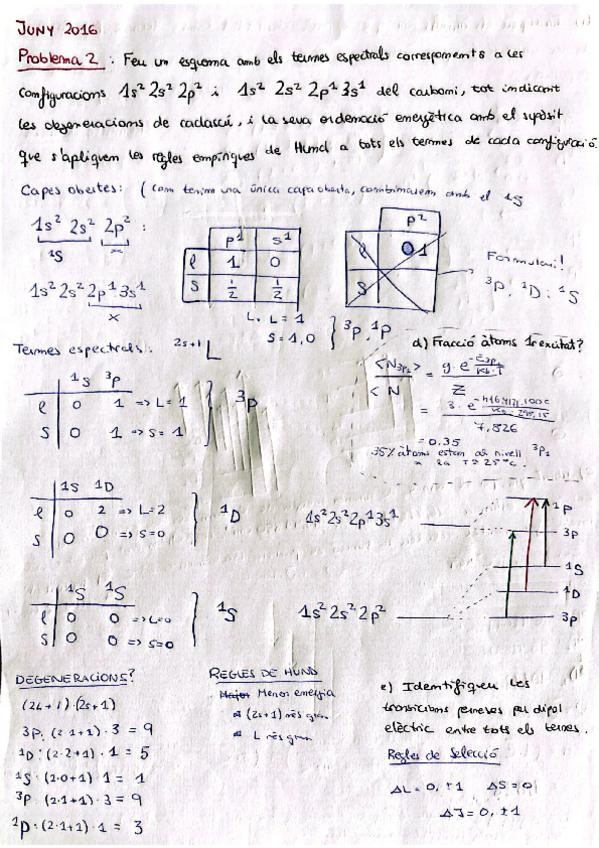 JUNY 2016
Problema 2 : Feu un esquema amb els termes espectrals corresponents a les
configuracions 1s² 2s² 2p² i 1s² 2s² 2p¹ 3s¹ del carboni, tot indicant
les degeneracions de cadascú, i la seva ordenació energètica amb el supòsit
que s'apliquen les regles empíriques de Hund a tots els termes de cada configuració.
Capes obertes: ( Com tenim una única capa oberta, combinarem amb el ¹S
1s² 2s² 2p² :
¹S x
1s² 2s² 2p¹ 3s¹
x
p¹ s¹
l 1 0
s 1/2 1/2
L. L = 1
S = 1,0 } ³P, ¹P
p²
l 0 1
S
Formulari!
³P, ¹D, ¹S
Termes espectrals: ²ˢ⁺¹L
¹S ³P
l 0 1 => L = 1
S 0 1 => S = 1
} ³P
d) Fracció àtoms 1r excitat?
<N³P₂> / <N = g·e / Z
7,826
= 0.35
35% àtoms estan al nivell ³P₂
a la T = 25ºC.
¹S ¹D
l 0 2 => L=2
S 0 0 => S=0
} ¹D
1s² 2s² 2p¹ 3s¹
1s² 2s² 2p²
¹P
³P
¹S
¹D
³P
¹S ¹S
l 0 0 => L=0
S 0 0 => S=0
} ¹S
DEGENERACIONS?
(2L+1)·(2s+1)
³P: (2·1+1)·3 = 9
¹D: (2·2+1)·1 = 5
¹S: (2·0+1)·1 = 1
³P: (2·1+1)·3 = 9
¹P: (2·1+1)·1 = 3
REGLES DE HUND
Menor energia
(2s+1) més gran
L més gran
e) Identifiqueu les
transicions permeses pel dipol
elèctric entre tots els termes.
Regles de Selecció
ΔL = 0, ±1 ΔS = 0
ΔJ = 0, ±1